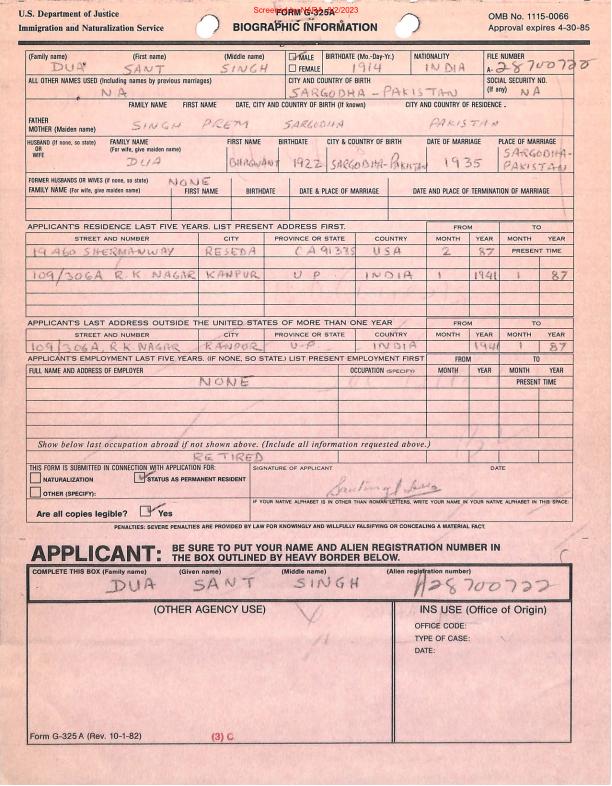 U.S. Department of Justice
Immigration and Naturalization Service
Screened by NARA, 8/2/2023
FORM G-325A
BIOGRAPHIC INFORMATION
OMB No. 1115-0066
Approval expires 4-30-85
(Family name) (First name) (Middle name) MALE FEMALE BIRTHDATE (Mo.-Day-Yr.) NATIONALITY FILE NUMBER
DUA SANT SINGH 1914 INDIA A-28700722
ALL OTHER NAMES USED (Including names by previous marriages) CITY AND COUNTRY OF BIRTH SOCIAL SECURITY NO. (If any)
NA SARGODHA - PAKISTAN NA
FAMILY NAME FIRST NAME DATE, CITY AND COUNTRY OF BIRTH (If known) CITY AND COUNTRY OF RESIDENCE.
FATHER
MOTHER (Maiden name)
SINGH PREM SARGODHA PAKISTAN
HUSBAND (If none, so state) OR WIFE FAMILY NAME (For wife, give maiden name) FIRST NAME BIRTHDATE CITY & COUNTRY OF BIRTH DATE OF MARRIAGE PLACE OF MARRIAGE
DUA BHAGWANT 1922 SARGODHA-PAKISTAN 1935 SARGODHA-PAKISTAN
FORMER HUSBANDS OR WIVES (if none, so state) NONE
FAMILY NAME (For wife, give maiden name) FIRST NAME BIRTHDATE DATE & PLACE OF MARRIAGE DATE AND PLACE OF TERMINATION OF MARRIAGE
APPLICANT'S RESIDENCE LAST FIVE YEARS. LIST PRESENT ADDRESS FIRST. FROM TO
STREET AND NUMBER CITY PROVINCE OR STATE COUNTRY MONTH YEAR MONTH YEAR
19460 SHERMANWAY RESEDA CA 91335 USA 2 87 PRESENT TIME
109/306A R.K NAGAR KANPUR U P INDIA 1 1941 1 87
APPLICANT'S LAST ADDRESS OUTSIDE THE UNITED STATES OF MORE THAN ONE YEAR FROM TO
STREET AND NUMBER CITY PROVINCE OR STATE COUNTRY MONTH YEAR MONTH YEAR
109/306A, R.K NAGAR KANPUR U-P. INDIA 1941 1 87
APPLICANT'S EMPLOYMENT LAST FIVE YEARS. (IF NONE, SO STATE.) LIST PRESENT EMPLOYMENT FIRST FROM TO
FULL NAME AND ADDRESS OF EMPLOYER OCCUPATION (SPECIFY) MONTH YEAR MONTH YEAR
NONE PRESENT TIME
Show below last occupation abroad if not shown above. (Include all information requested above.)
RETIRED
THIS FORM IS SUBMITTED IN CONNECTION WITH APPLICATION FOR: SIGNATURE OF APPLICANT DATE
NATURALIZATION STATUS AS PERMANENT RESIDENT
OTHER (SPECIFY):
IF YOUR NATIVE ALPHABET IS IN OTHER THAN ROMAN LETTERS, WRITE YOUR NAME IN YOUR NATIVE ALPHABET IN THIS SPACE:
Are all copies legible? Yes
PENALTIES: SEVERE PENALTIES ARE PROVIDED BY LAW FOR KNOWINGLY AND WILLFULLY FALSIFYING OR CONCEALING A MATERIAL FACT.
APPLICANT: BE SURE TO PUT YOUR NAME AND ALIEN REGISTRATION NUMBER IN
THE BOX OUTLINED BY HEAVY BORDER BELOW.
COMPLETE THIS BOX (Family name) (Given name) (Middle name) (Alien registration number)
DUA SANT SINGH A28700722
(OTHER AGENCY USE) INS USE (Office of Origin)
OFFICE CODE:
TYPE OF CASE:
DATE:
Form G-325 A (Rev. 10-1-82) (3) C